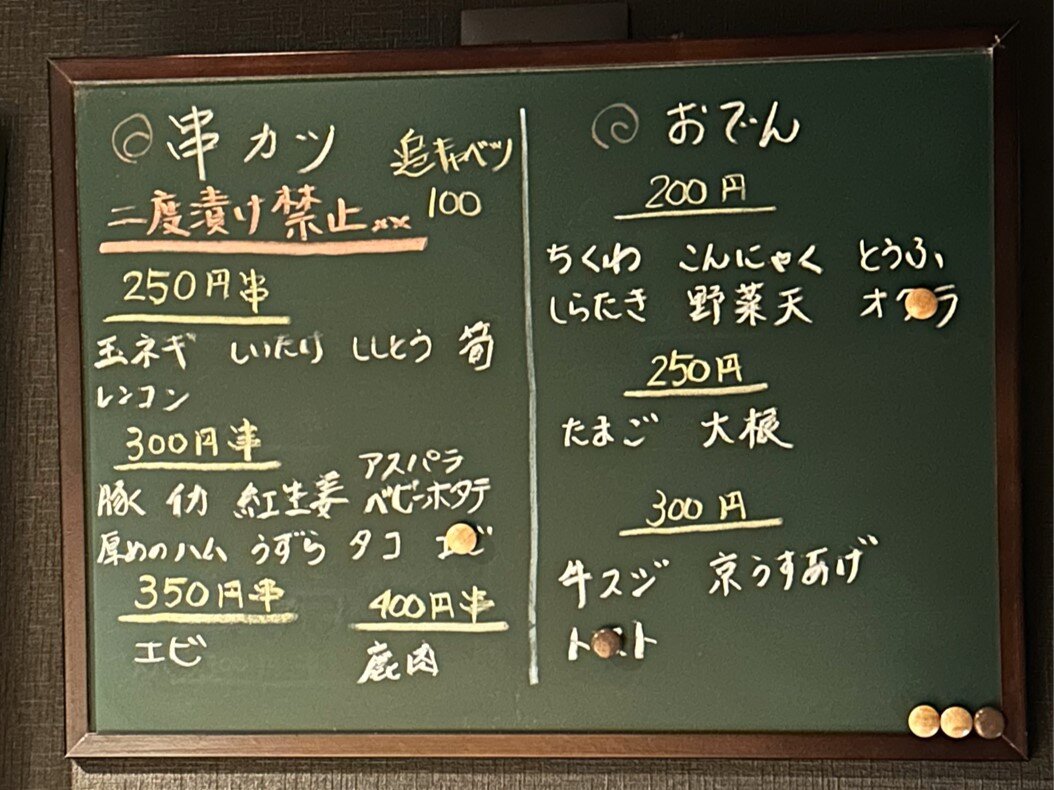 串カツ
追キャベツ
100
二度漬け禁止××
250円串
玉ネギ しいたけ ししとう 筍
レンコン
300円串
アスパラ
豚 イカ 紅生姜 ベビーホタテ
厚めのハム うずら タコ
350円串
エビ
400円串
鹿肉
おでん
200円
ちくわ こんにゃく とうふ
しらたき 野菜天
250円
たまご 大根
300円
牛スジ 京うすあげ